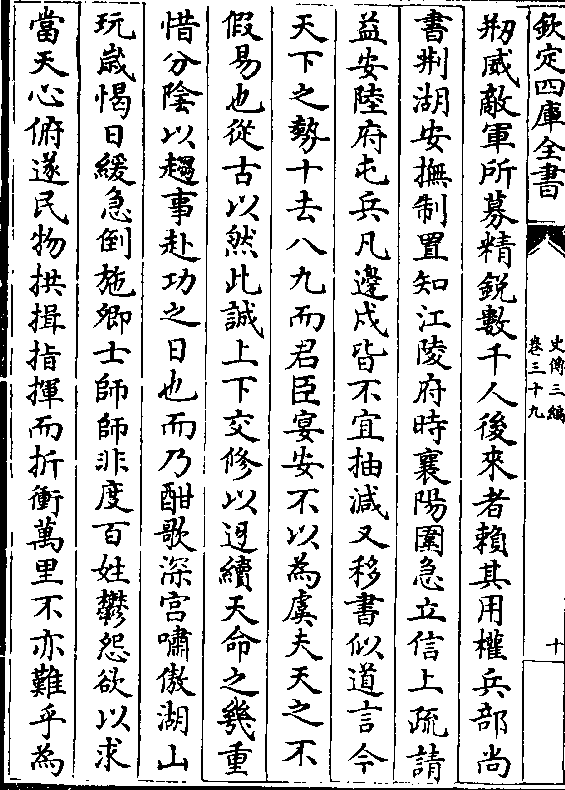 欽定四庫全書
史傳三編
卷三十九
十
刱威敵軍所募精鋭數千人後來者賴其用權兵部尚
書荆湖安撫制置知江陵府時襄陽圍急立信上疏請
益安陸府屯兵凡邊戍皆不宜抽減又移書似道言今
天下之勢十去八九而君臣宴安不以為虞夫天之不
假易也從古以然此誠上下交修以迓續天命之幾重
惜分陰以趨事赴功之日也而乃酣歌深宫嘯傲湖山
玩嵗愒日緩急倒施卿士師師非度百姓鬱怨欲以求
當天心俯遂民物拱揖指揮而折衝萬里不亦難乎為